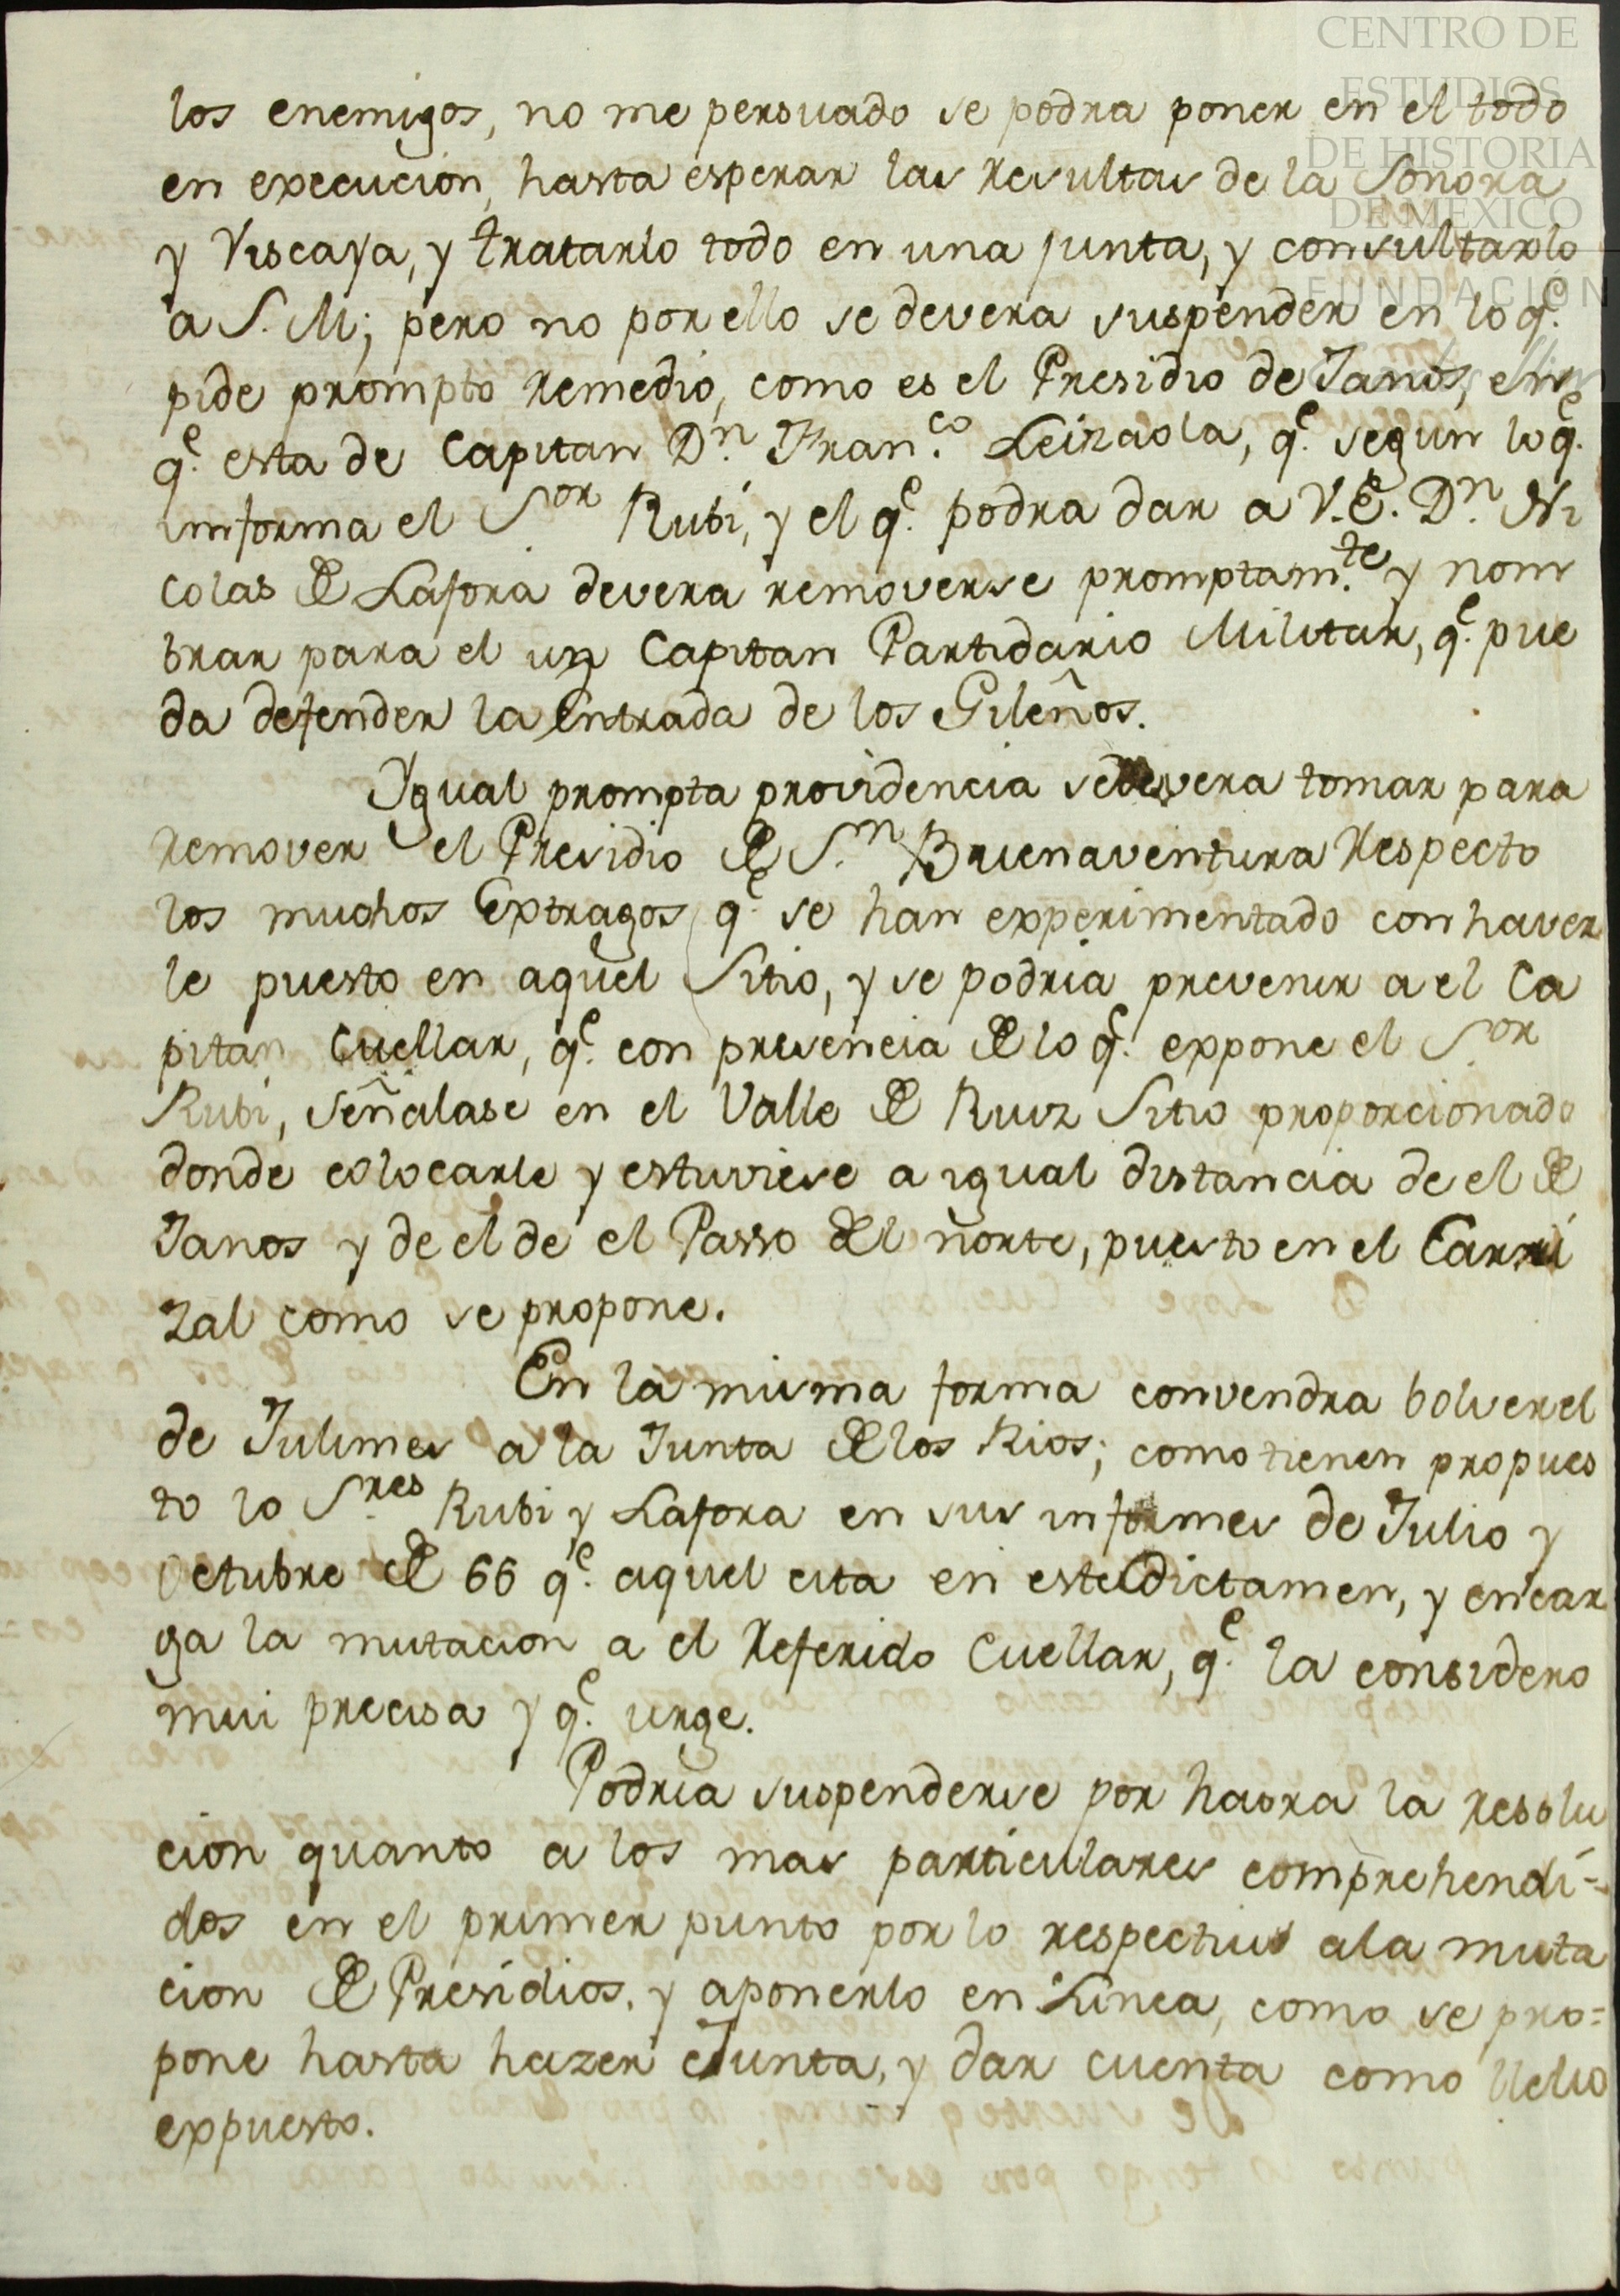 CENTRO DE
ESTUDIOS
DE HISTORIA
DE MEXICO
FUNDACIÓN
los enemigos, no me persuado se podra poner en el todo
en execucion, hasta esperar las resultas de la Sonora
y Viscaya, y tratarlo todo en una junta, y consultarlo
a S. M; pero no por ello se devera suspender en lo q.e
pide prompto remedio, como es el Presidio de Janos, en
q.e esta de Capitan D.n Fran.co Leizaola, q.e segun lo q.e
informa el S.or Rubi, y el q.e podra dar a V.E. D.n Ni
colas de Lafora devera removerse promptam.te y nom
brar para el un Capitan Partidario Militar, q.e pue
da defender la Entrada de los Gileños.
Ygual prompta providencia se devera tomar para
remover el Presidio de S.n Buenaventura respecto
los muchos Extragos q.e se han experimentado con haver
le puesto en aquel Sitio, y se podria prevenir a el Ca
pitan Cuellar, q.e con presencia de lo q.e expone el S.or
Rubi, señalase en el Valle de Ruiz Sitio proporcionado
donde colocarle y estuviese a igual distancia de el de
Janos y de el de el Passo del norte, puesto en el Carri
zal como se propone.
En la misma forma convendra bolver el
de Julimes a la Junta de los Rios; como tienen propues
to lo S.res Rubi y Lafora en sus informes de Julio y
Octubre de 66 q.e aquel cita en este dictamen, y encar
ga la mutacion a el referido Cuellar, q.e la considero
mui precisa y q.e urge.
Podria suspenderse por haora la resolu
cion quanto a los mas particulares comprehendi-
dos en el primer punto por lo respectivo a la muta
cion de Presidios, y a ponerlo en Linea, como se pro=
pone hasta hazer Junta, y dar cuenta como llebo
expuesto.